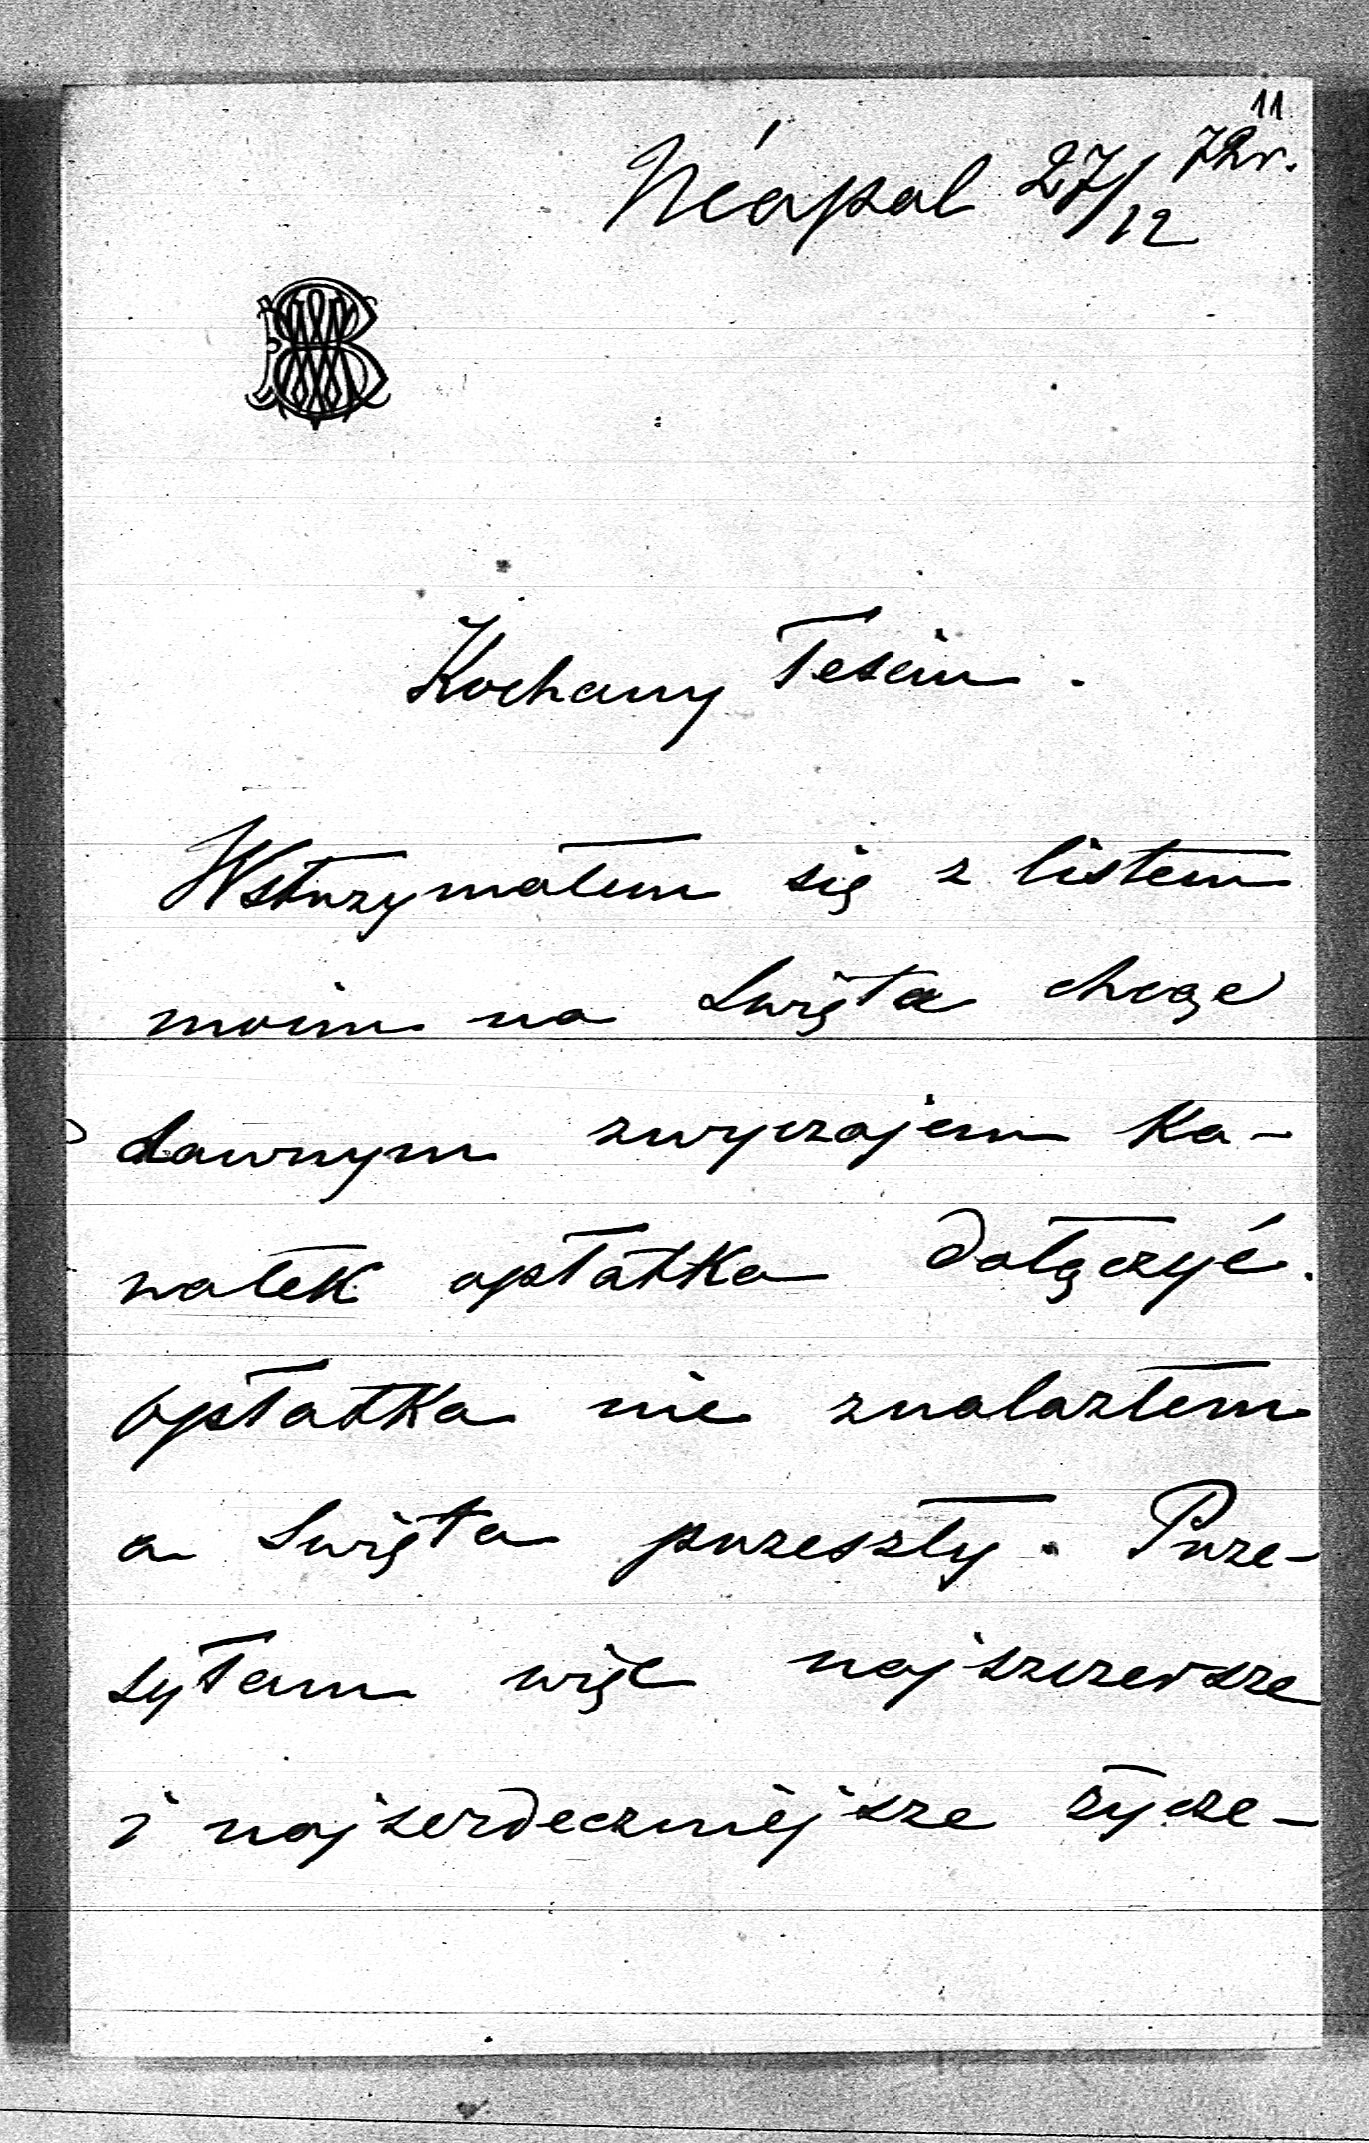 11
Néapol 27/12 72r.
Kochany Teściu.
Wstrzymałem się z listem
moim na Święta chcąc
dawnym zwyczajem ka-
wałek opłatka dołączyć.
opłatka nie znalazłem
a Święta przeszły. Prze-
syłam więc najszczersze
i najserdeczniejsze życze-